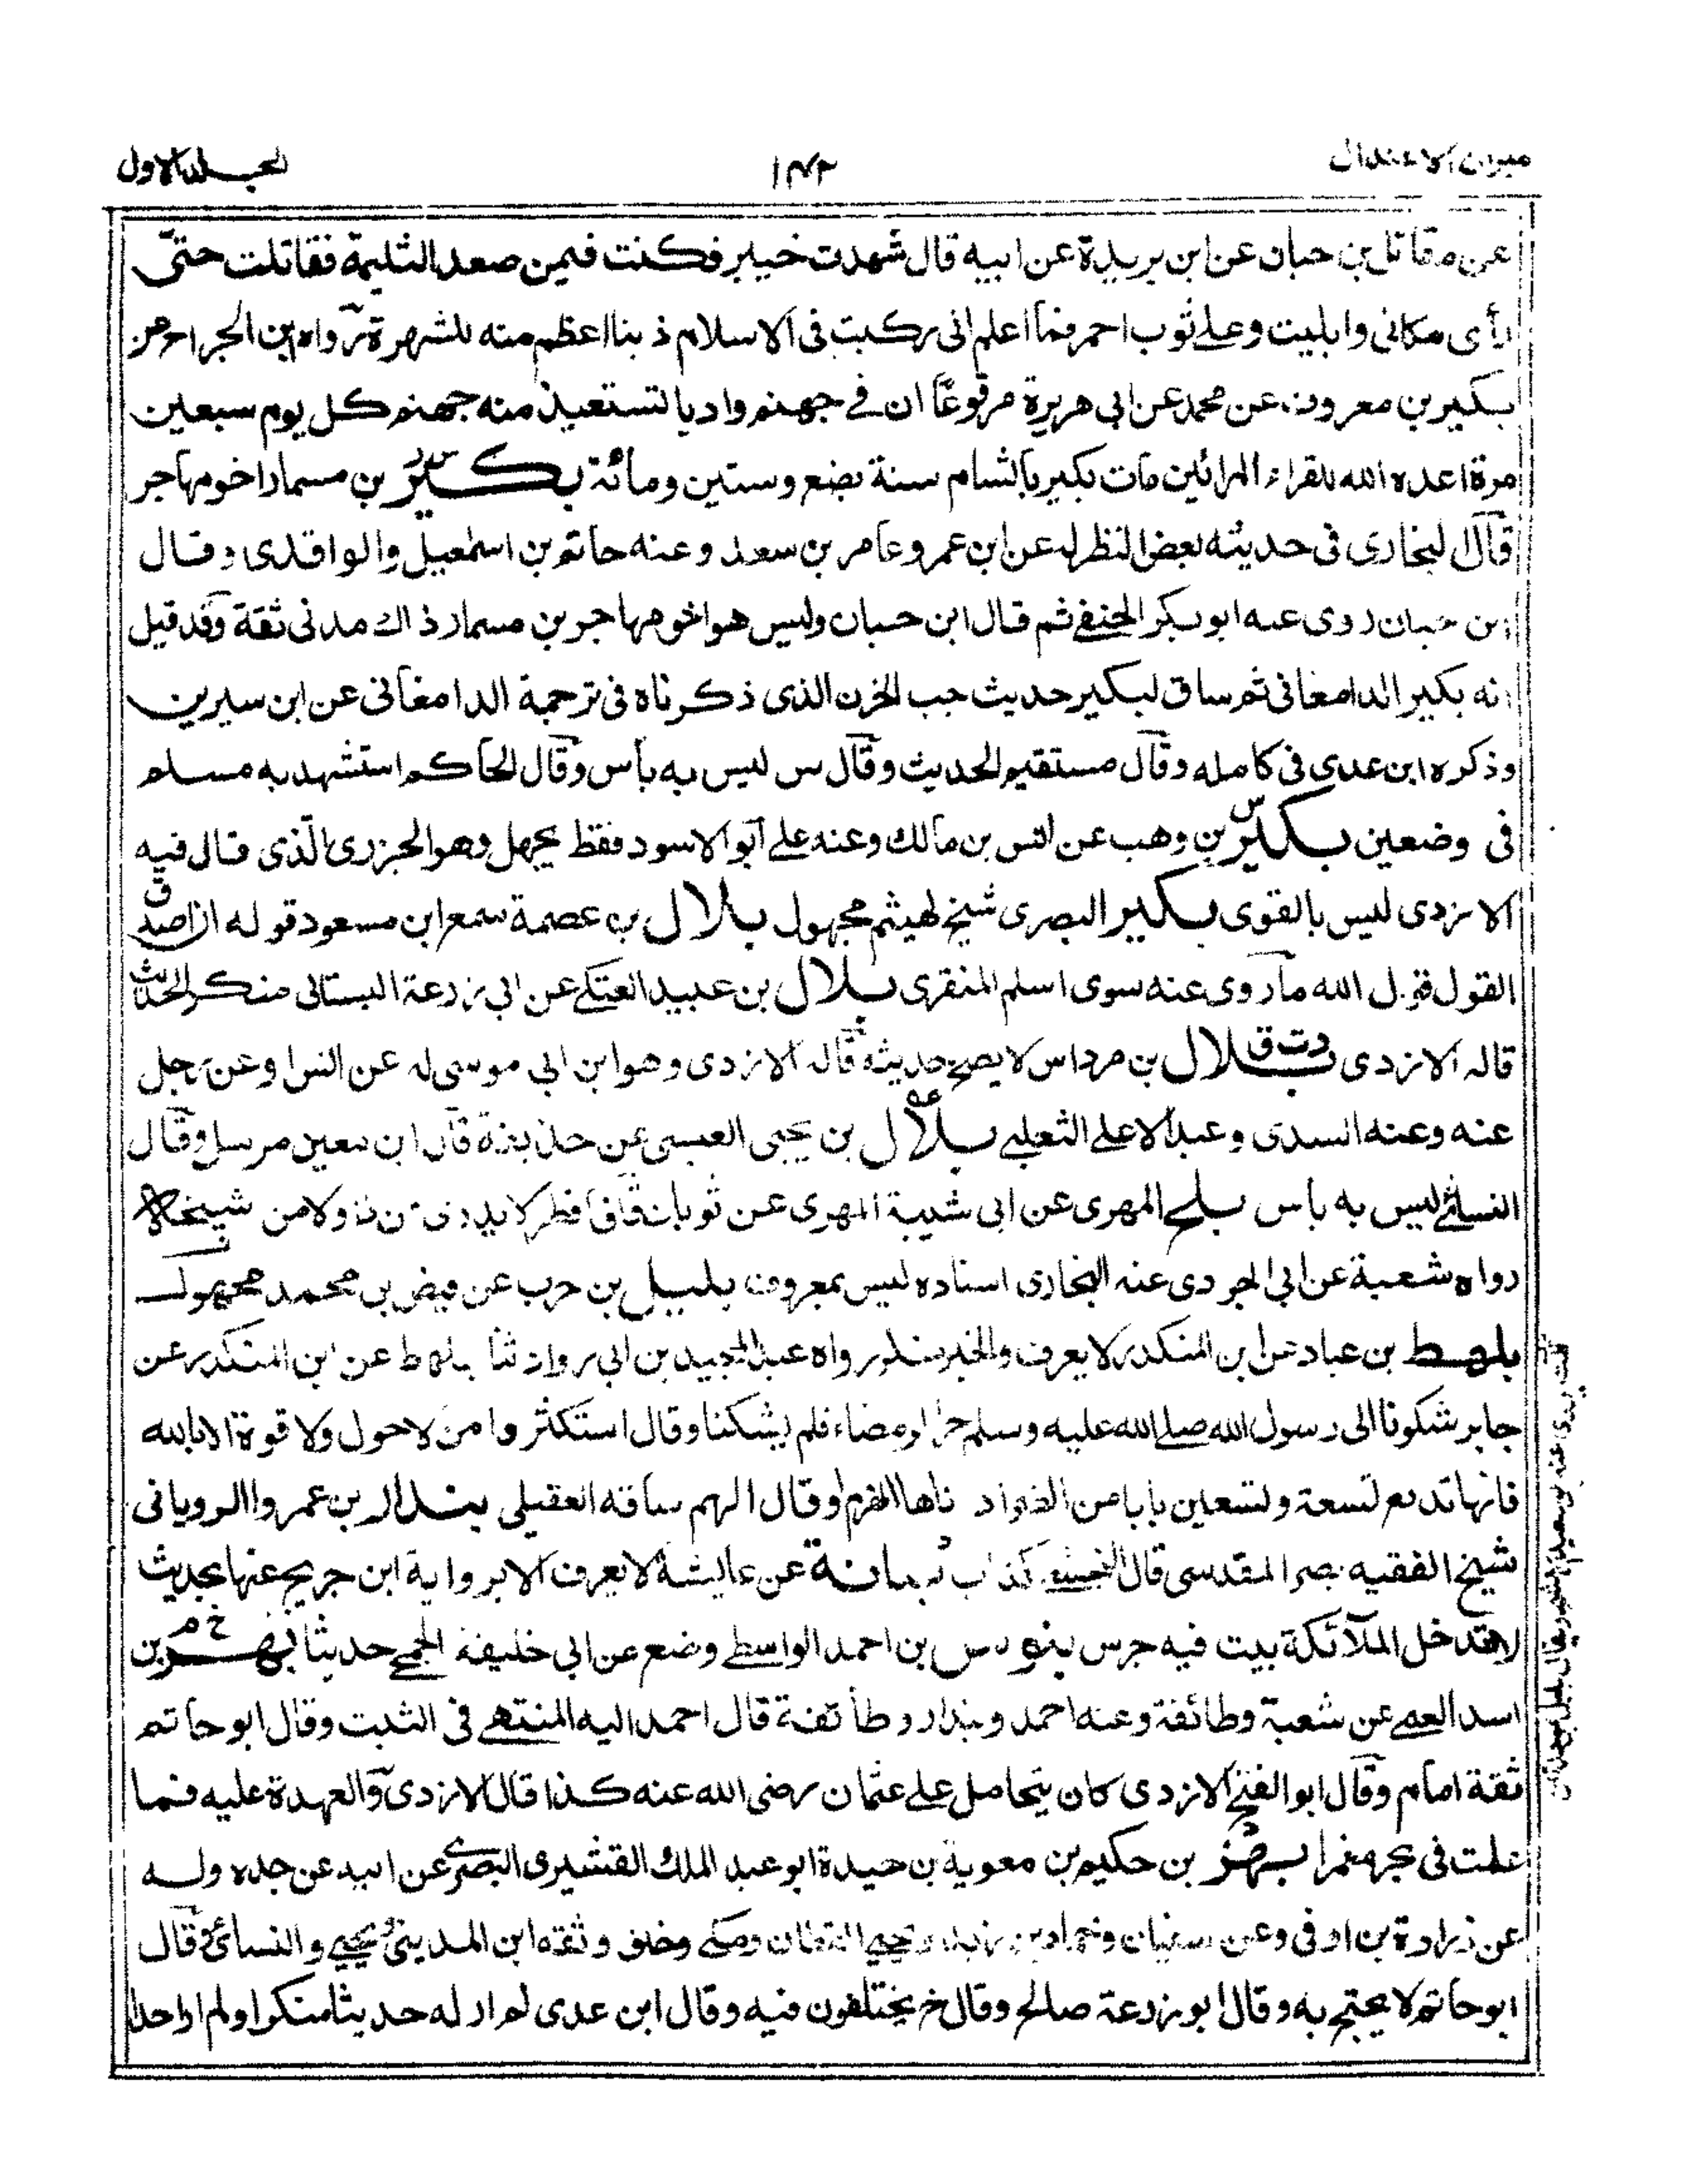 ميزان الاعتدال
١٤٢
المجلد الاول
عن مقاتل بن حبان عن ابن بريدة عن ابيه قال شهدت خيبر فكنت فيمن صعد الثليمة فقاتلت حتى
رأى مكانى وابليت وعلے ثوب احمر فما اعلم انى ركبت فى الاسلام ذنبا اعظم منه للشهرة رواه بن الجراح عن
بكير بن معروف عن محمد عن ابى هريرة مرفوعًا ان فے جهنم واديا تستعيذ منه جهنم كل يوم سبعين
مرة اعده الله للقراء المرائين مات بكير بالشام سنة بضع وستين ومائة بكير بن مسمار اخو مهاجر
قال البخارى فى حديثه بعض النظر له عن ابن عمر وعامر بن سعد وعنه حاتم بن اسمعيل والواقدى وقال
ابن حبان روى عنه ابو بكر الحنفے ثم قال ابن حبان وليس هو اخو مهاجر بن مسمار ذاك مدنى ثقة وقد قيل
انه بكير الدامغانى ثم ساق لبكير حديث جب الحزن الذى ذكرناه فى ترجمة الدامغانى عن ابن سيرين
وذكره ابن عدى فى كامله وقال مستقيم الحديث وقال س ليس به بأس وقال الحاكم استشهد به مسلم
فى وضعين بكير بن وهب عن انس بن مالك وعنه علے ابو الاسود فقط يجهل وهو الجزرى الذى قال فيه
الازدى ليس بالقوى بكير البصرى شيخ لهيثم مجهول بلال بن عصمة سمع ابن مسعود قوله ان اصدق
القول قول الله ما روى عنه سوى اسلم المنقرى بلال بن عبيد العتكے عن ابى زرعة البستانى منكر الحديث
قاله الازدى دت ق بلال بن مرداس لا يصح حديثه قاله الازدى وهو ابن ابى موسى له عن انس او عن رجل
عنه وعنه السدى وعبد الاعلے الثعلبے بلال بن يحيى العبسى عن حذيفة قال ابن معين مرسل وقال
النسائے ليس به بأس بلج المهرى عن ابى شيبة المهرى عن ثوبان قاء فافطر لا يدرى من ذا ولا من شيخه
رواه شعبة عن ابى الجودى عنه البخارى اسناده ليس بمعروف بليل بن حرب عن فيض بن محمد مجهول
بلهط بن عباد عن ابن المنكدر لا يعرف والخبر منكر رواه عبد المجيد بن ابى رواد ثنا بلهط عن ابن المنكدر عن
جابر شكونا الى رسول الله صلے الله عليه وسلم حر الرمضاء فلم يشكنا وقال استكثروا من لا حول ولا قوة الا بالله
فانها تدفع تسعة وتسعين بابا من الضر ادناها الهرم او قال الهم ساقه العقيلى بندار بن عمرو الرويانى
شيخ الفقيه نصر المقدسى قال النخشبے كذاب بنانة عن عايشة لا يعرف الا برواية ابن جريج عنها بحديث
لا تدخل الملآئكة بيت فيه جرس بنوس بن احمد الواسطے وضع عن ابى خليفة الجمحے حديثا خ م بهز بن
اسد العمے عن شعبة وطائفة وعنه احمد وبندار وطائفة قال احمد اليه المنتهے فى الثبت وقال ابو حاتم
ثقة امام وقال ابو الفتح الازدى كان يتحامل على عثمان رضى الله عنه كذا قال الازدى والعهدة عليه فما
علمت فى بهز مغمزا بهز بن حكيم بن معوية بن حيدة ابو عبد الملك القشيرى البصرى عن ابيه عن جده وله
عن زرارة بن اوفى وعن سفيان وحماد بن زيد ويحيے القطان ومكے وخلق وثقه ابن المدينى ويحيے والنسائى وقال
ابو حاتم لا يحتج به وقال ابو زرعة صالح وقال خ يختلفون فيه وقال ابن عدى لم ار له حديثا منكرا ولم ار احدا